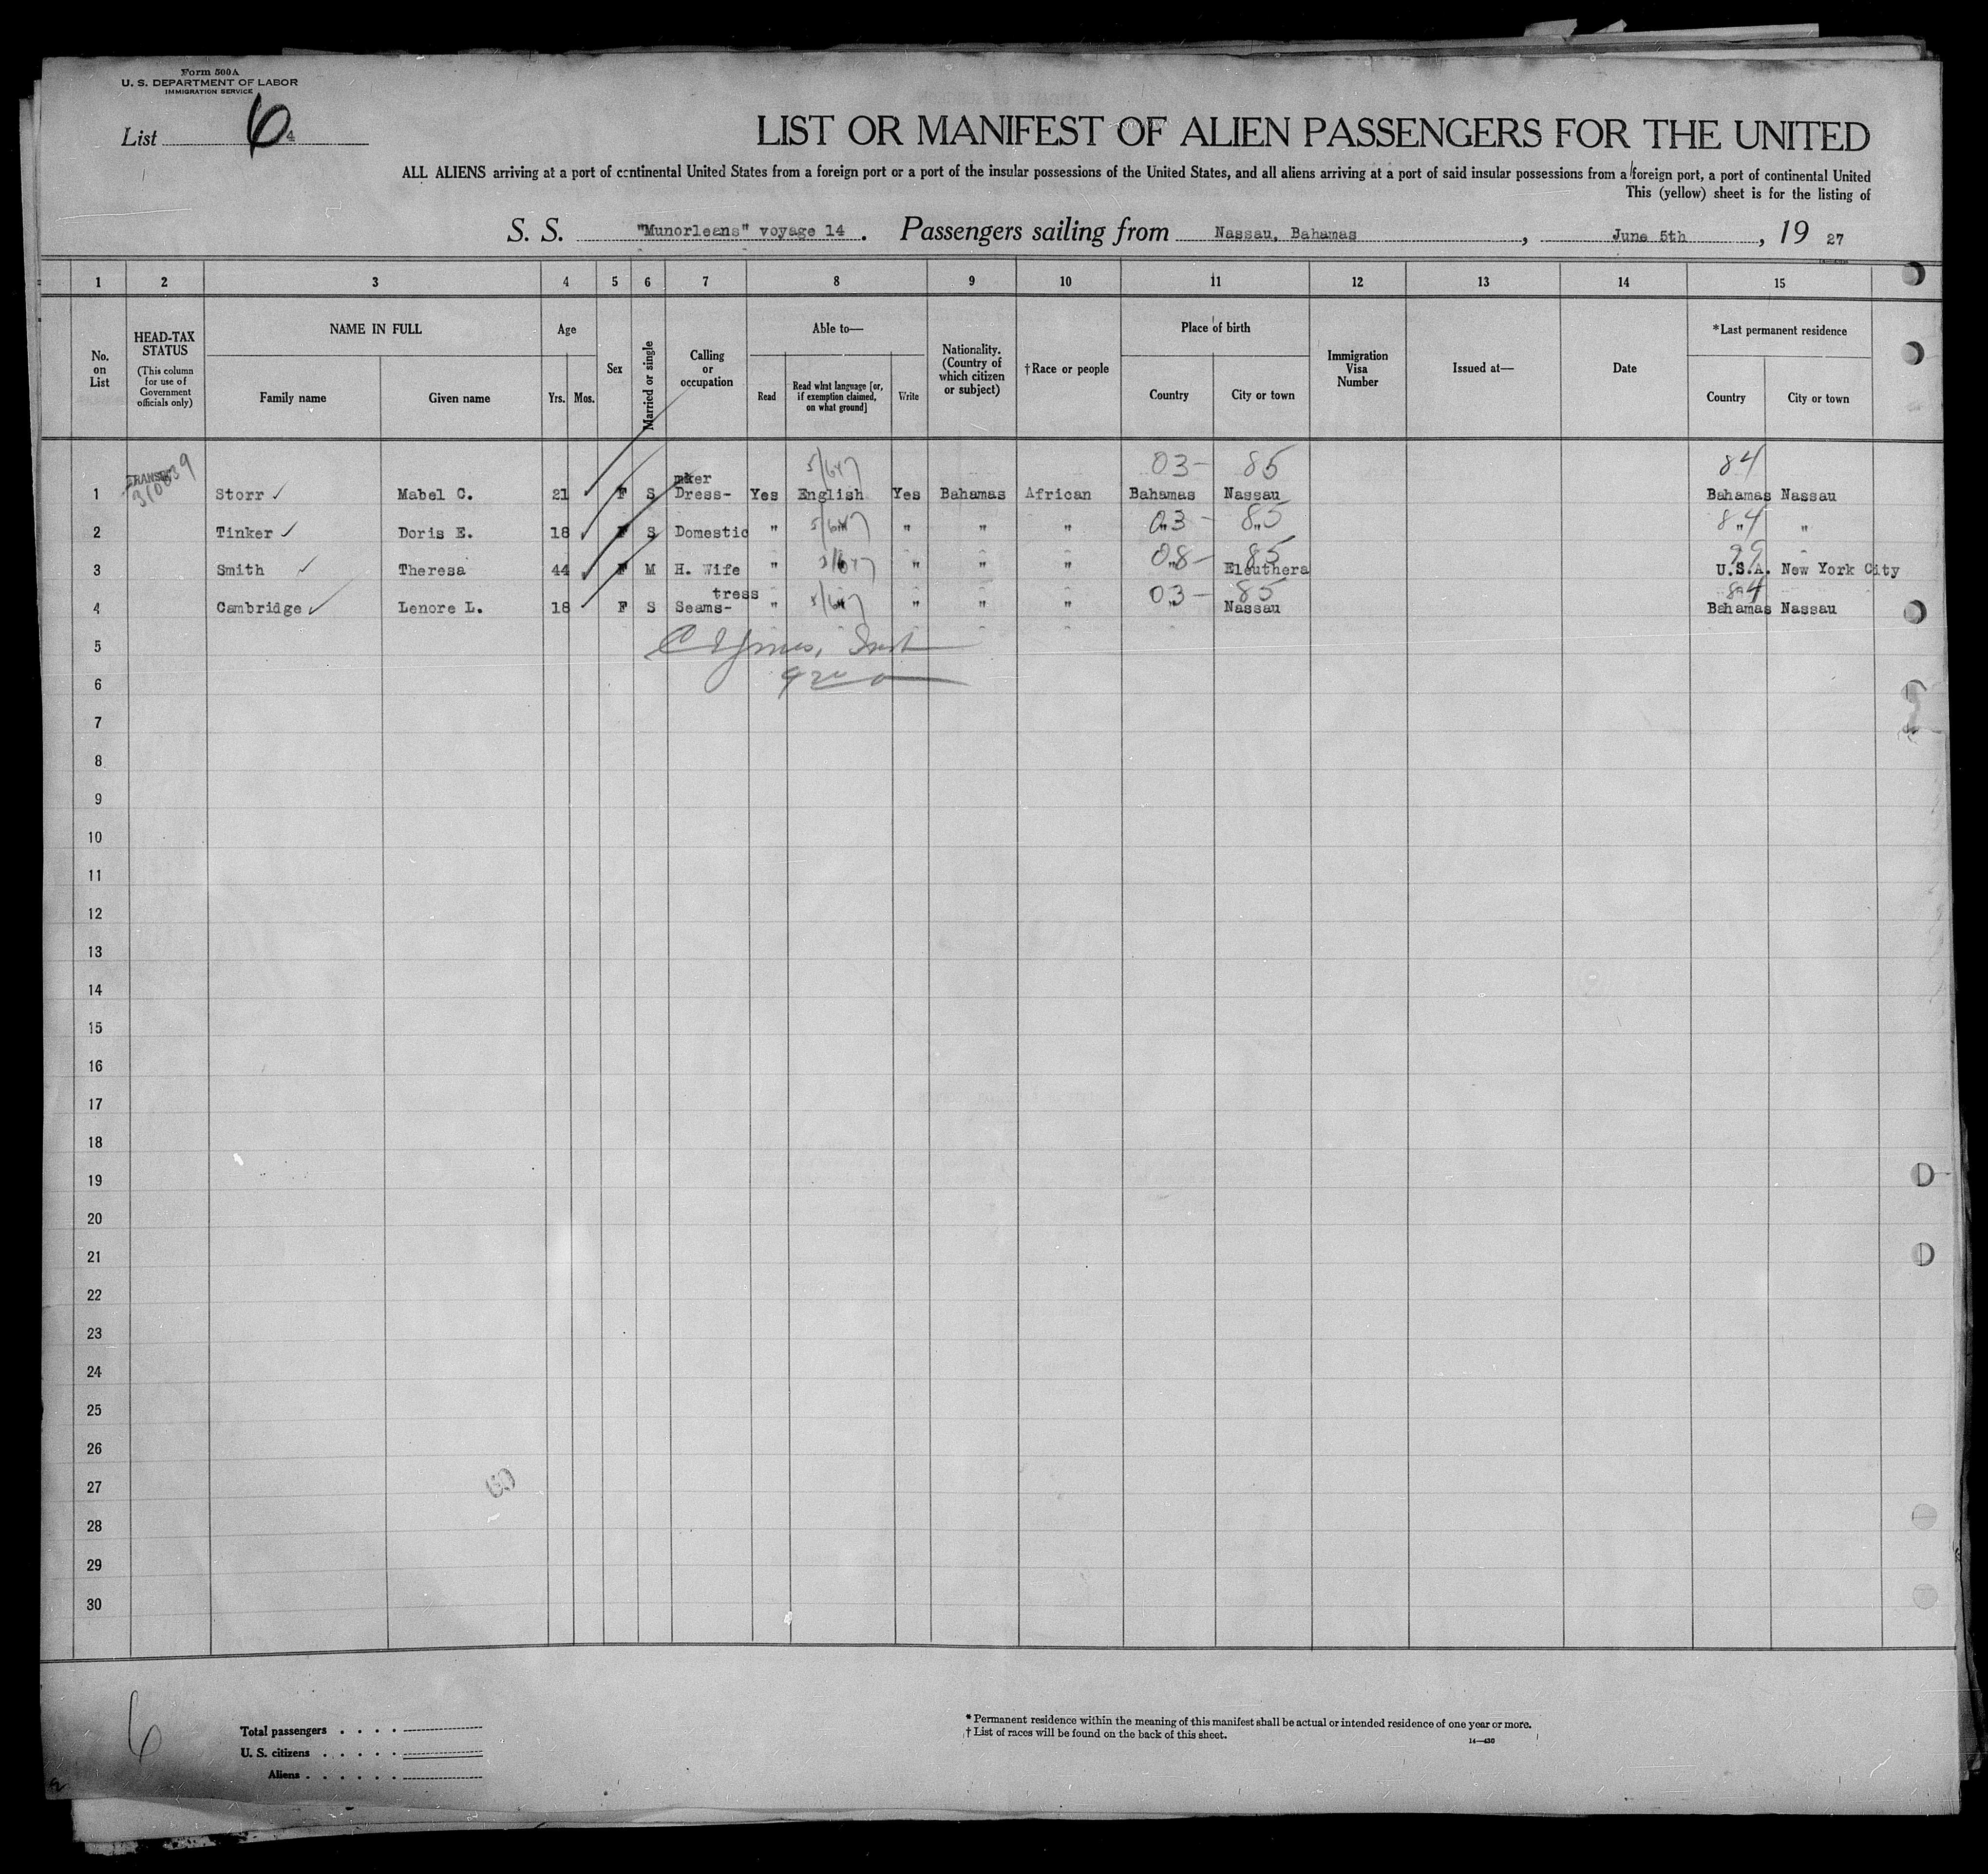 Form 500A
U. S. DEPARTMENT OF LABOR
IMMIGRATION SERVICE
List 6 4
LIST OR MANIFEST OF ALIEN PASSENGERS FOR THE UNITED
ALL ALIENS arriving at a port of continental United States from a foreign port or a port of the insular possessions of the United States, and all aliens arriving at a port of said insular possessions from a foreign port, a port of continental United
This (yellow) sheet is for the listing of
S. S. "Munorleans" voyage 14. Passengers sailing from Nassau, Bahamas, June 5th, 1927
1 2 3 4 5 6 7 8 9 10 11 12 13 14 15
No. on List
HEAD-TAX STATUS
(This column for use of Government officials only)
NAME IN FULL
Family name
Given name
Age
Yrs. Mos.
Sex
Married or single
Calling or occupation
Able to—
Read
Read what language [or, if exemption claimed, on what ground]
Write
Nationality. (Country of which citizen or subject)
†Race or people
Place of birth
Country
City or town
Immigration Visa Number
Issued at—
Date
*Last permanent residence
Country
City or town
5/647 03- 85 84
maker
1 Storr Mabel C. 21 F S Dress- Yes English Yes Bahamas African Bahamas Nassau Bahamas Nassau
03- 85 84
2 Tinker Doris E. 18 F S Domestic " " " " " " " " "
08- 85 99
3 Smith Theresa 44 F M H. Wife " " " " " " Eleuthera U.S.A. New York City
tress 5/647 03- 85 84
4 Cambridge Lenore L. 18 F S Seams- " " " " " " Nassau Bahamas Nassau
5
6
7
8
9
10
11
12
13
14
15
16
17
18
19
20
21
22
23
24
25
26
27
28
29
30
6
Total passengers . . . .
U. S. citizens . . . . .
Aliens . . . . . .
* Permanent residence within the meaning of this manifest shall be actual or intended residence of one year or more.
† List of races will be found on the back of this sheet.
14—430